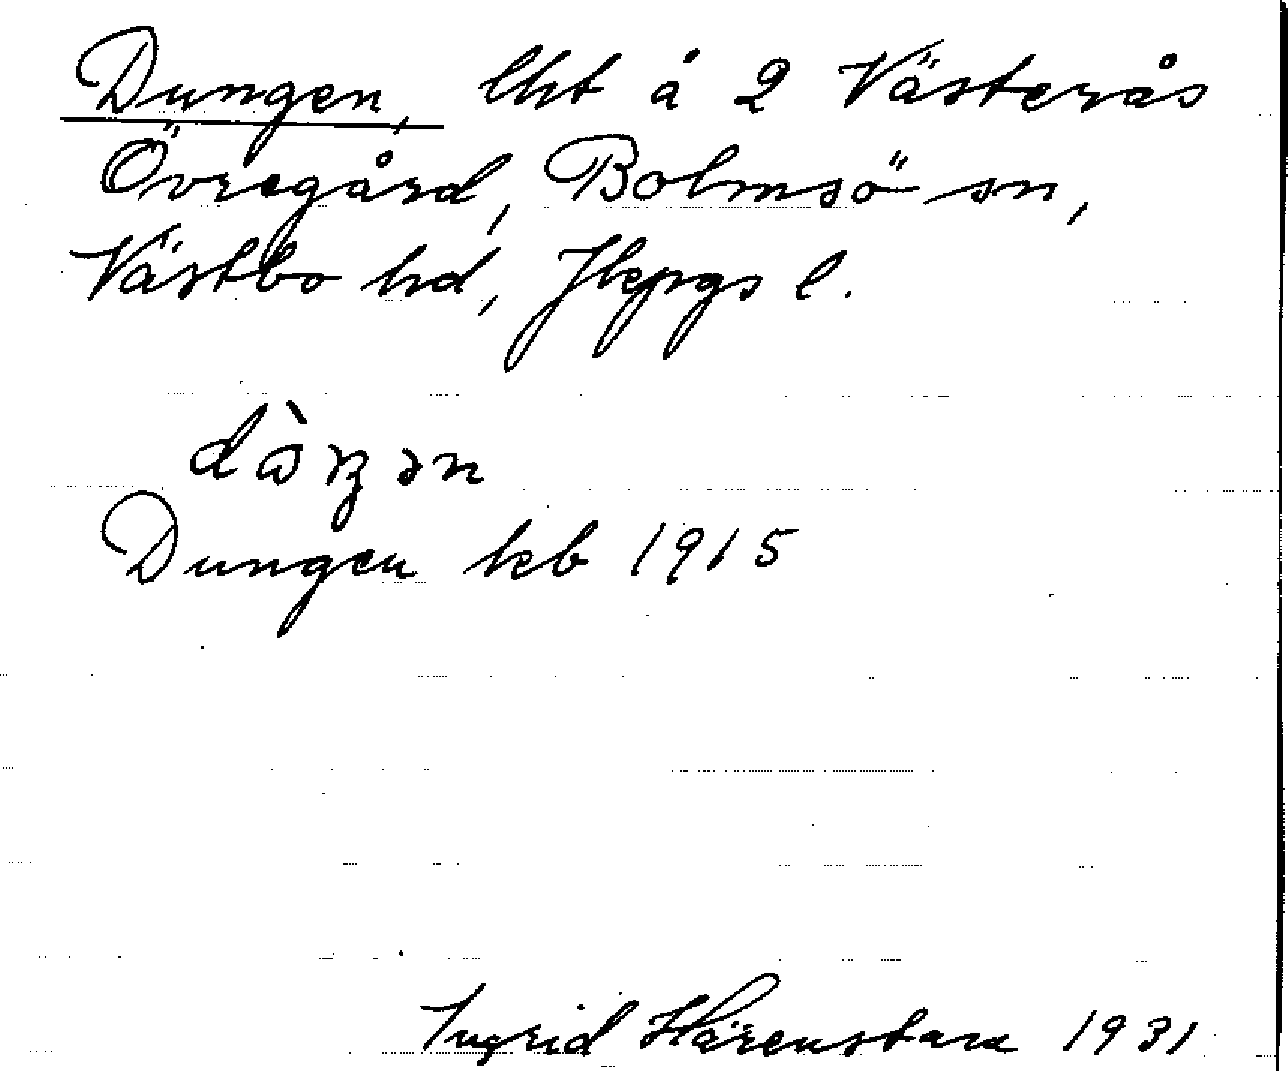 Dungen, lht å 2 Västerås
Övregård, Bolmsö sn,
Västbo hd, Jkpgs l.
Dungen kb 1915
Ingrid Härenstam 1931